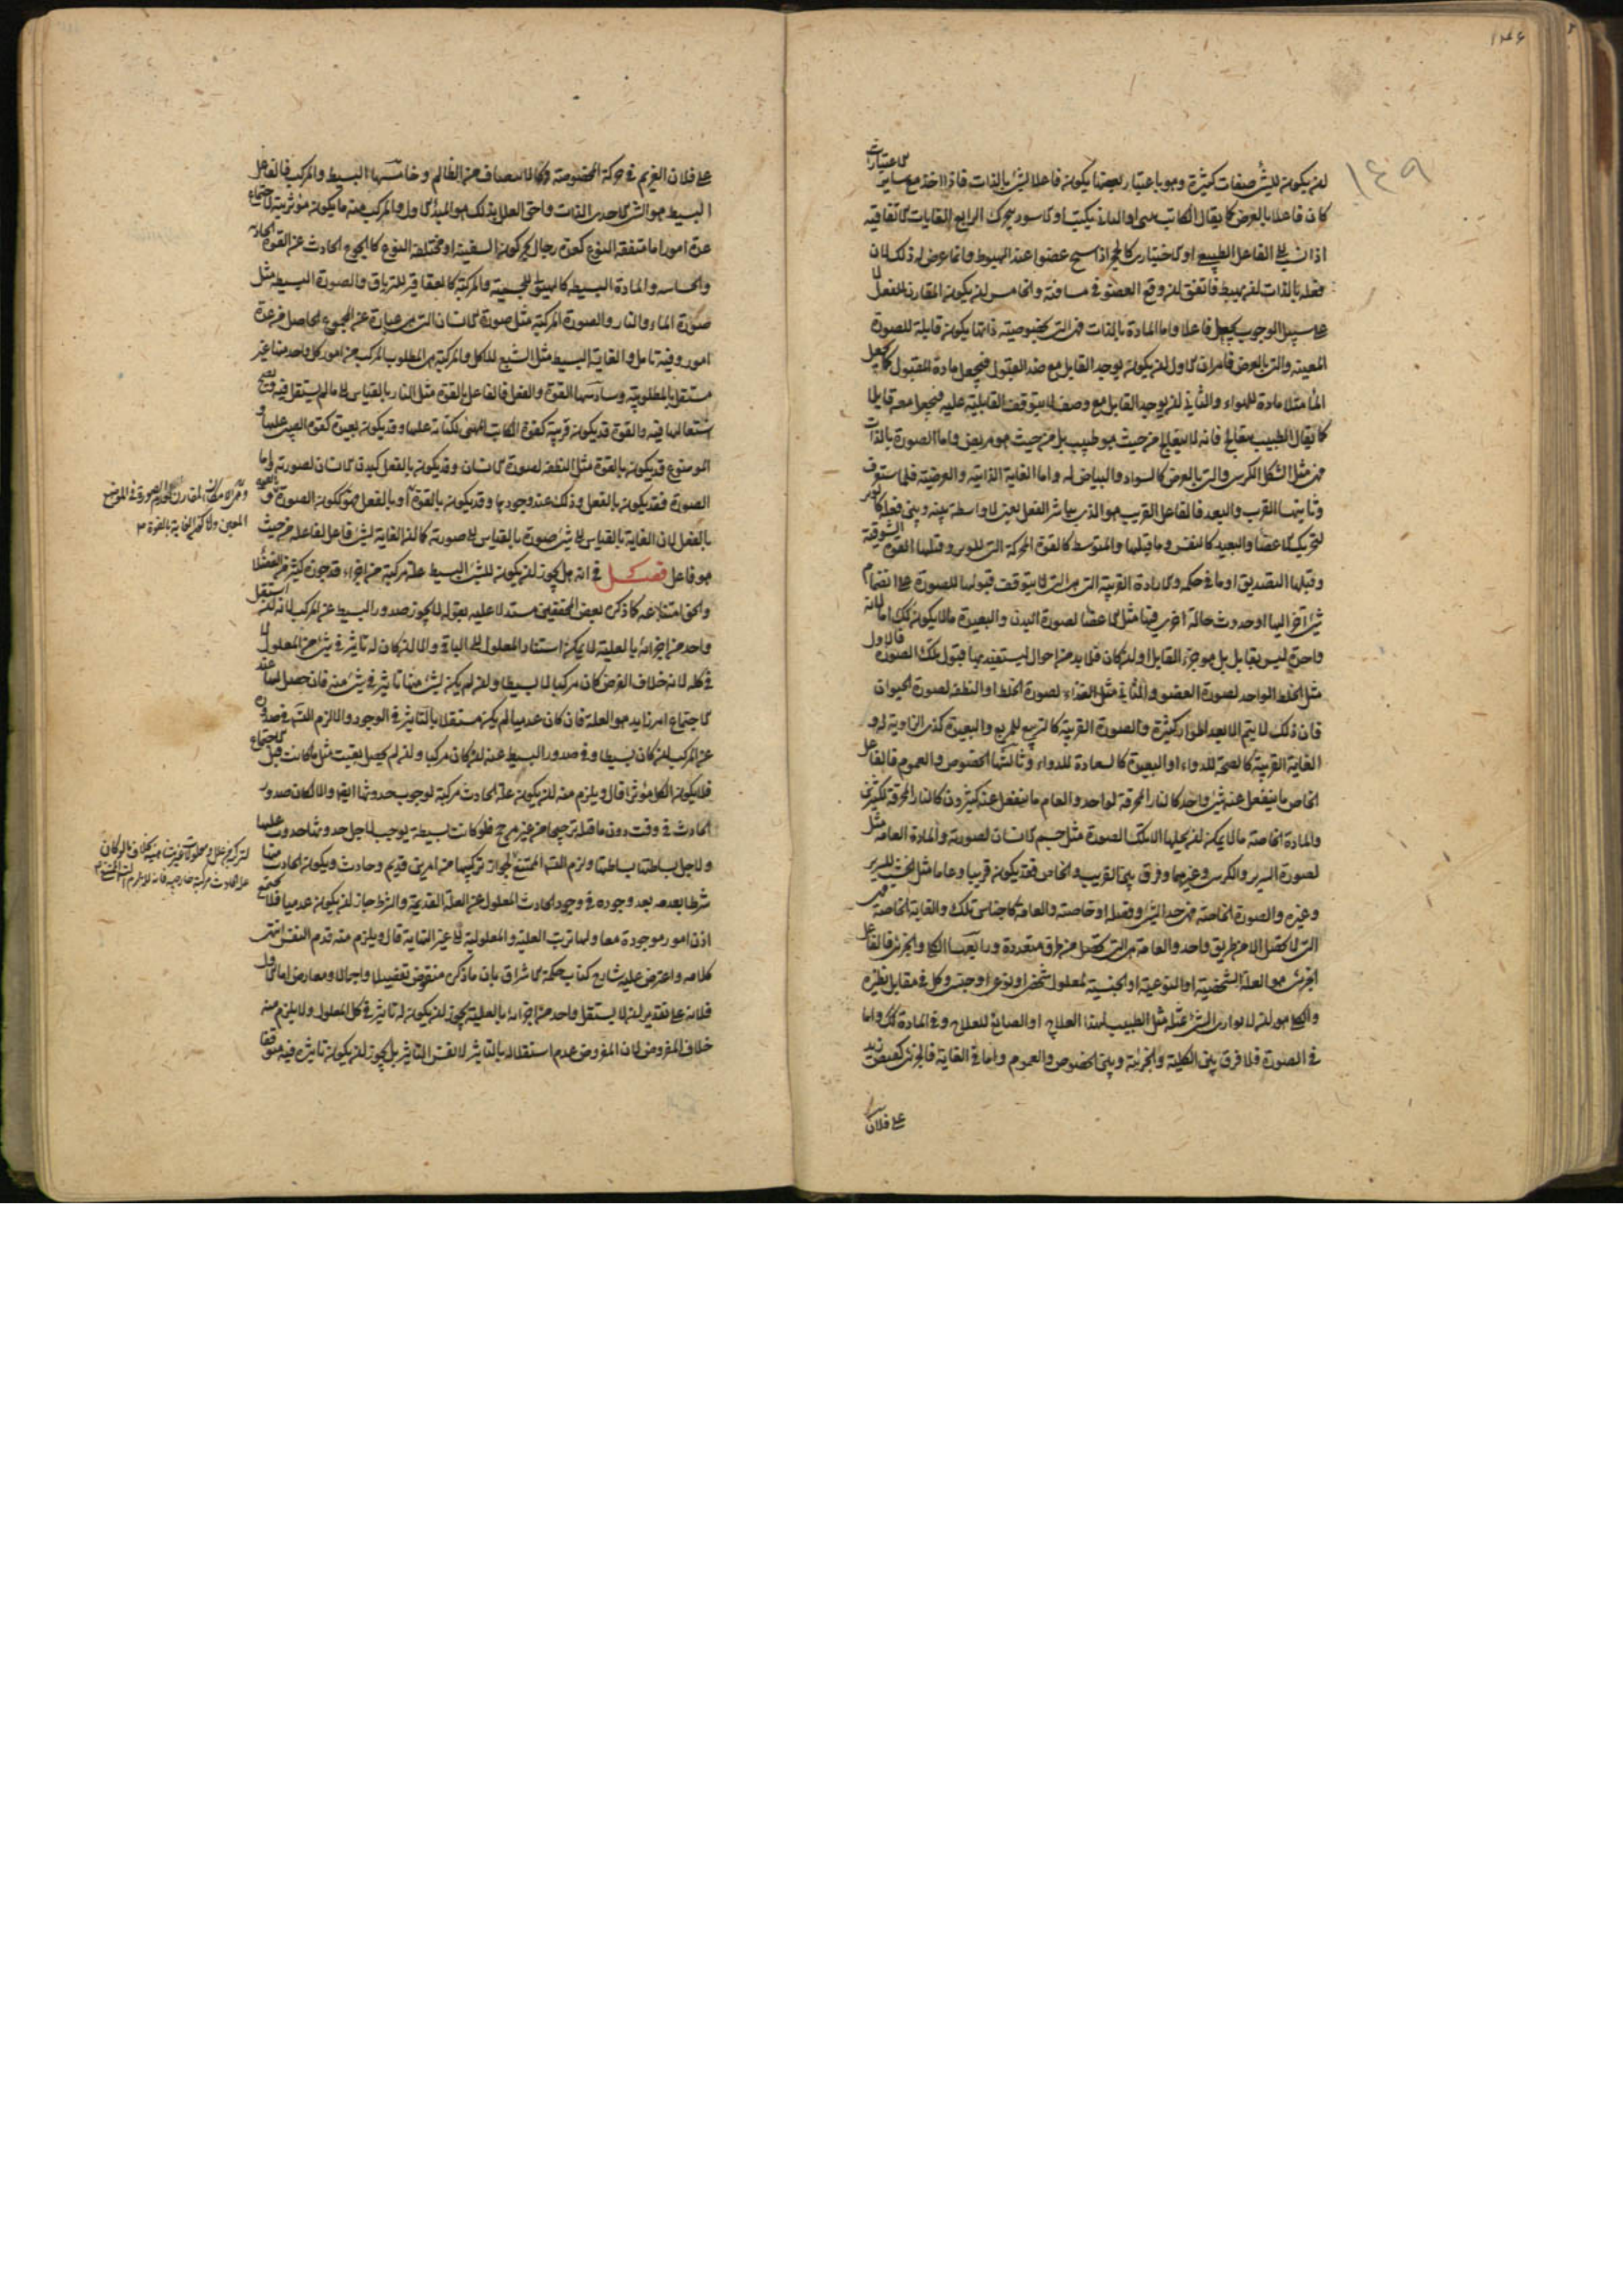 ١٤٩
لان يكون للشئ صفات كثيرة وهو باعتبار بعضها يكون فاعلا لشئ بالذات فاذا اخذ مع ساير الاعتبارات
كان فاعلا بالعرض كما يقال الكاتب او البناء يكتب او الاسود يتحرك الرابع الغايات الاتفاقية
اذا نسب الى الفاعل الطبيعى او الاختيارى كالحجر اذا شج عضوا عند الهبوط وانما عرض له ذلك لان
فعله بالذات ان يهبط فاتفق ان وقع العضو فى مسافته والخامس ان يكون المقارن للفعل لا
على سبيل الوجوب يجعل فاعلا واما المادة بالذات فهى التى بخصوصية ذاتها يكون قابلة للصورة
المعينة والتى بالعرض فامران الاول ان يكون يوجد القابل مع ضد المقبول فيجعل مادة للمقبول كما يجعل
الماء مثلا مادة للهواء والثانى ان يوجد القابل مع وصف لا يتوقف القابلية عليه فيجعل معه قابلا
كما يقال الطبيب يتعالج فانه لا يتعالج من حيث هو طبيب بل من حيث هو مريض واما الصورة بالذات
فهى مثل الشكل للكرسى والتى بالعرض كالسواد والبياض له واما الغاية الذاتية والعرضية فلما ستعرف
وثانيتها القرب والبعد فالفاعل القريب هو الذى يباشر الفعل يعنى لا واسطة بينه وبين فعله كالوتر
لتحريك الاعضاء والبعيد كالنفس وما قبلها والمتوسط كالقوة المحركة التى للوتر وقبلها القوة الشوقية
وقبلها التصديق او ما فى حكمه والمادة القريبة التى هى التى لا يتوقف قبولها للصورة على انضمام
شئ اخر اليها او حدوث حالة اخرى فيها مثل الاعضاء لصورة البدن والبعيدة ما لا يكون كذلك اما لانه
واحدة ليس بقابل بل هو جزء القابل او ان كان فلا بد من احوال ليستفيد بها قبول تلك الصورة فالاول
مثل الخلط الواحد لصورة العضو والثانى مثل الغذاء لصورة الخلط او النطفة لصورة الحيوان
فان ذلك لا يتم الا بعد اطوار كثيرة والصورة القريبة كالتربيع للمربع والبعيدة كذى الزاوية له و
الغاية القريبة كالصحة للدواء او البعيدة كالسعادة للدواء وثالثتها الخصوص والعموم فالفاعل
الخاص ما ينفعل عنه شئ واحد كالنار المحرقة لواحد والعام ما ينفعل عنه كثيرون كالنار المحرقة لكثيرين
والمادة الخاصة ما لا يمكن ان يحلها الا تلك الصورة مثل جسم الانسان لصورته والمادة العامة مثل
لصورة السرير والكرسى وغيرهما وفرق بين القريب والخاص فقد يكون قريبا وعاما مثل الخشب للسرير
وغيره والصورة الخاصة فهى حد الشئ وفصله او خاصته والعامة كاجناس تلك والغاية الخاصة فهى
التى لا تحصل الا من طريق واحد والعامة هى التى تحصل من طرق متعددة ورابعتها الكلى والجزئى فالفاعل
الجزئى هو العلة الشخصية او النوعية او الجنسية لمعلول شخصى او نوعى او جنسى وكل فى مقابل نظيره
والكلى هو ان لا يوازى الشئ بمثله مثل الطبيب لهذا العلاج او الصانع للعلاج وفى المادة كذلك واما
فى الصورة فلا فرق بين الكلية والجزئية وبين الخصوص والعموم واما فى الغاية فالجزئى كقبض زيد
على فلان
على فلان الغريم فى حركة المخصوصة والكلى كالانتصاف من الظالم وخامستها البسيط والمركب فالفاعل
البسيط هو الشئ الاحدى الذات واحق العلل بذلك هو المبدأ الاول والمركب منه ما يكون مؤثريته لاجتماع
عدة امور اما متفقة النوع كعدة رجال يحركون السفينة او مختلفة النوع كالجوع الحادث عن القوة الجاذبة
والحاسة والمادة البسيطة كالهيولى للجسمية والمركبة كالعقاقير للترياق والصورة البسيطة مثل
صورة الماء والنار والصورة المركبة مثل صورة الانسان التى هى عبارة عن المجموع الحاصل من عدة
امور وفيه تامل والغاية البسيط مثل الشبع للاكل والمركبة هى المطلوب المركب من امور كل واحد منها غير
مستقل بالمطلوبية وسادستها القوة والفعل فالفاعل بالقوة مثل النار بالقياس الى ما لم يشتعل فيه ويصح
اشتعالها فيه والقوة قد يكون قريبة كقوة الكاتب المتهيئ لكتابة عليها وقد يكون بعيدة كقوة الصبى عليها و
الموضوع قد يكون بالقوة مثل النطفة لصورة الانسان وقد يكون بالفعل كبدن الانسان لصورته واما
الصورة فقد يكون بالفعل وذلك عند وجودها وقد يكون بالقوة او بالفعل هو ككون الصورة
بالفعل لان الغاية بالقياس الى شئ صورة بالقياس الى صورية كما ان الغاية لشئ فاعل لفاعله من حيث
هو فاعل فصل فى انه هل يجوز ان يكون للشئ البسيط علة مركبة من اجزاء قد جوزه كثير من الفضلا
والحق امتناعه كما ذكره بعض المحققين مستدلا عليه بقوله لا يجوز صدور البسيط عن المركب لانه ان استقل
واحد من اجزائه بالعلية لا يمكن استناد المعلول الى الباقى والا ان كان له تاثير فى شئ من المعلول لا
فى كله لانه خلاف الفرض كان مركبا لا بسيطا وان لم يكن لشئ منها تاثير فى شئ منه فان حصل لها عند
الاجتماع امر زايد هو العلة فان كان عدميا لم يكن مستقلا بالتاثير فى الوجود والا لزم التس فى صدوره
عن المركب ان كان بسيطا وفى صدور البسيط عنه ان كان مركبا وان لم يحصل بقيت مثل ما كانت قبل الاجتماع
فلا يكون الكل مؤثرا قال ويلزم منه ان يكون علة الحادث مركبة لوجوب حدوثها ايضا والا لكان صدور
الحادث فى وقت دون ما قبله ترجيحا من غير مرجح فلو كانت بسيطة يوجب لاجل حدوثها حدوث علتها
ولاجل بساطتها بساطتها ولزم التس الممتنع لجواز تركبها من امرين قديم وحادث ويكون الحادث منها
شرطا بعدمه بعد وجوده فى وجود الحادث المعلول عن العلة القديمة والشرط جاز ان يكون عدميا فلا يجتمع
اذن امور موجودة معا ولها ترتب العلية والمعلولية الى غير النهاية قال ويلزم منه قدم النفس انتهى
كلامه واعترض عليه شارح كتاب حكمة الاشراق بان ما ذكره منقوض تفصيلا واجمالا ومعارض اما الاول
فلانه على تقدير ان لا يستقل واحد من اجزائه بالعلية يجوز ان يكون له تاثير فى كل المعلول ولا يلزم منه
خلاف المفروض لان المفروض عدم استقلاله بالتاثير لا نفس التاثير بل يجوز ان يكون تاثيره فيه متوقفا